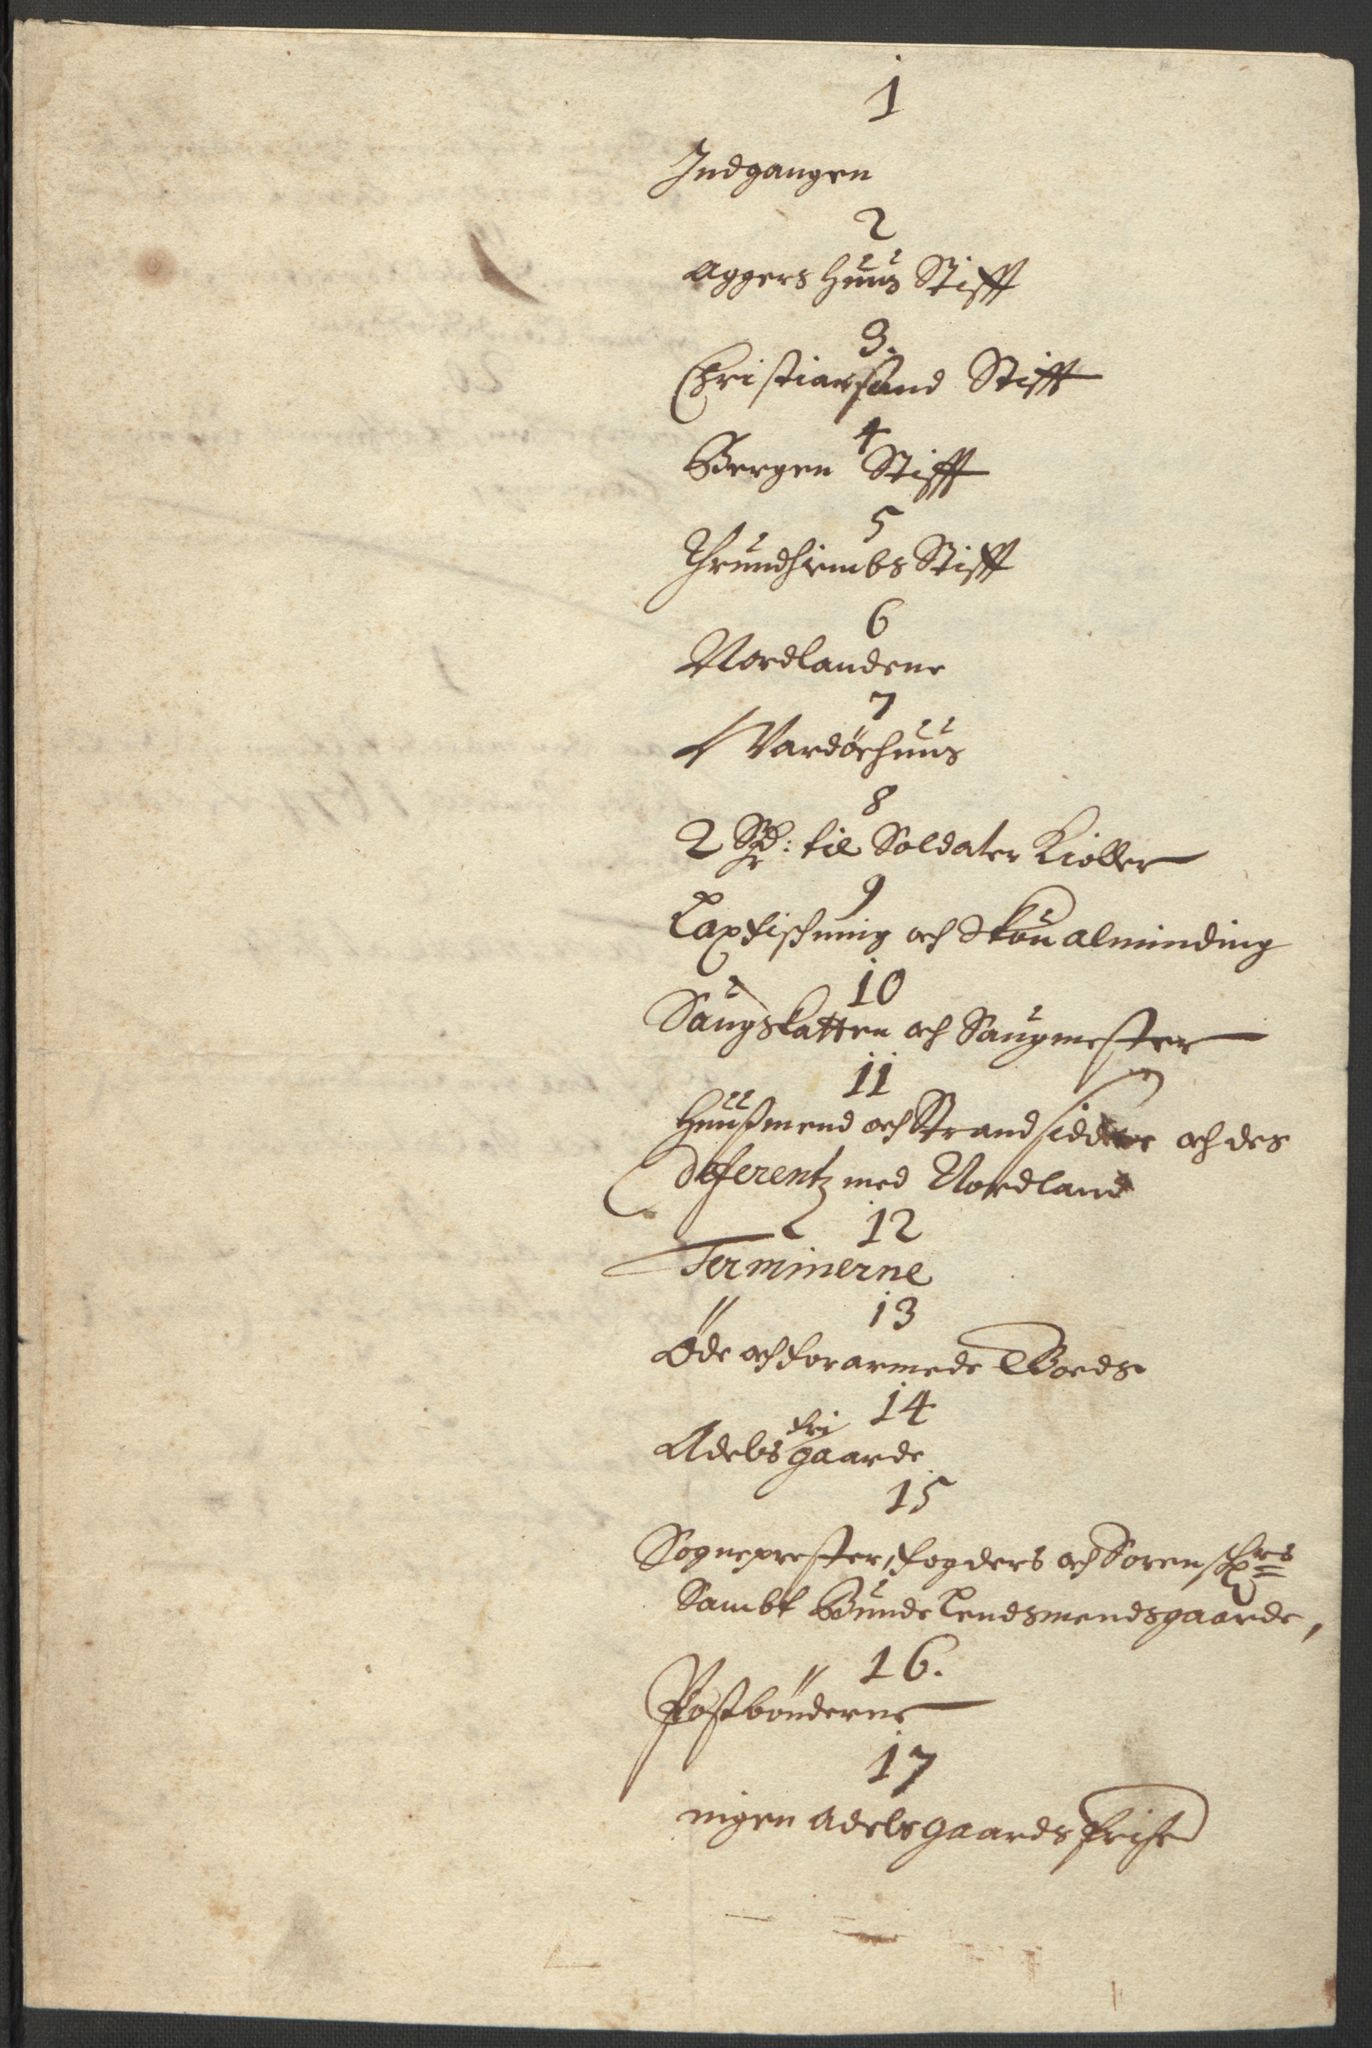 1
Indgangen
2
Aggershuus Stifft
3.
Christiansand Stifft
4
Bergen Stifft
5
Thrundhiembs Stifft
6
Nordlandene
7
Wardøehuus
8
2 Rdr: til Soldater Kioller
9
Laxfischning och Skou alminding
10
Saugskatten och Saugmester
11
Huußmend och Strandsiddere och des
diferentz med Nordland
12
Terminerne
13
Öde och forarmede Goeds
14
fri
Adelsgaarde
15
Sogneprester, fogders och Sorenschrs
Sambt Bunde Lendsmendsgaarde,
16.
Postbönderne
17
ingen Adelsgaards frihed